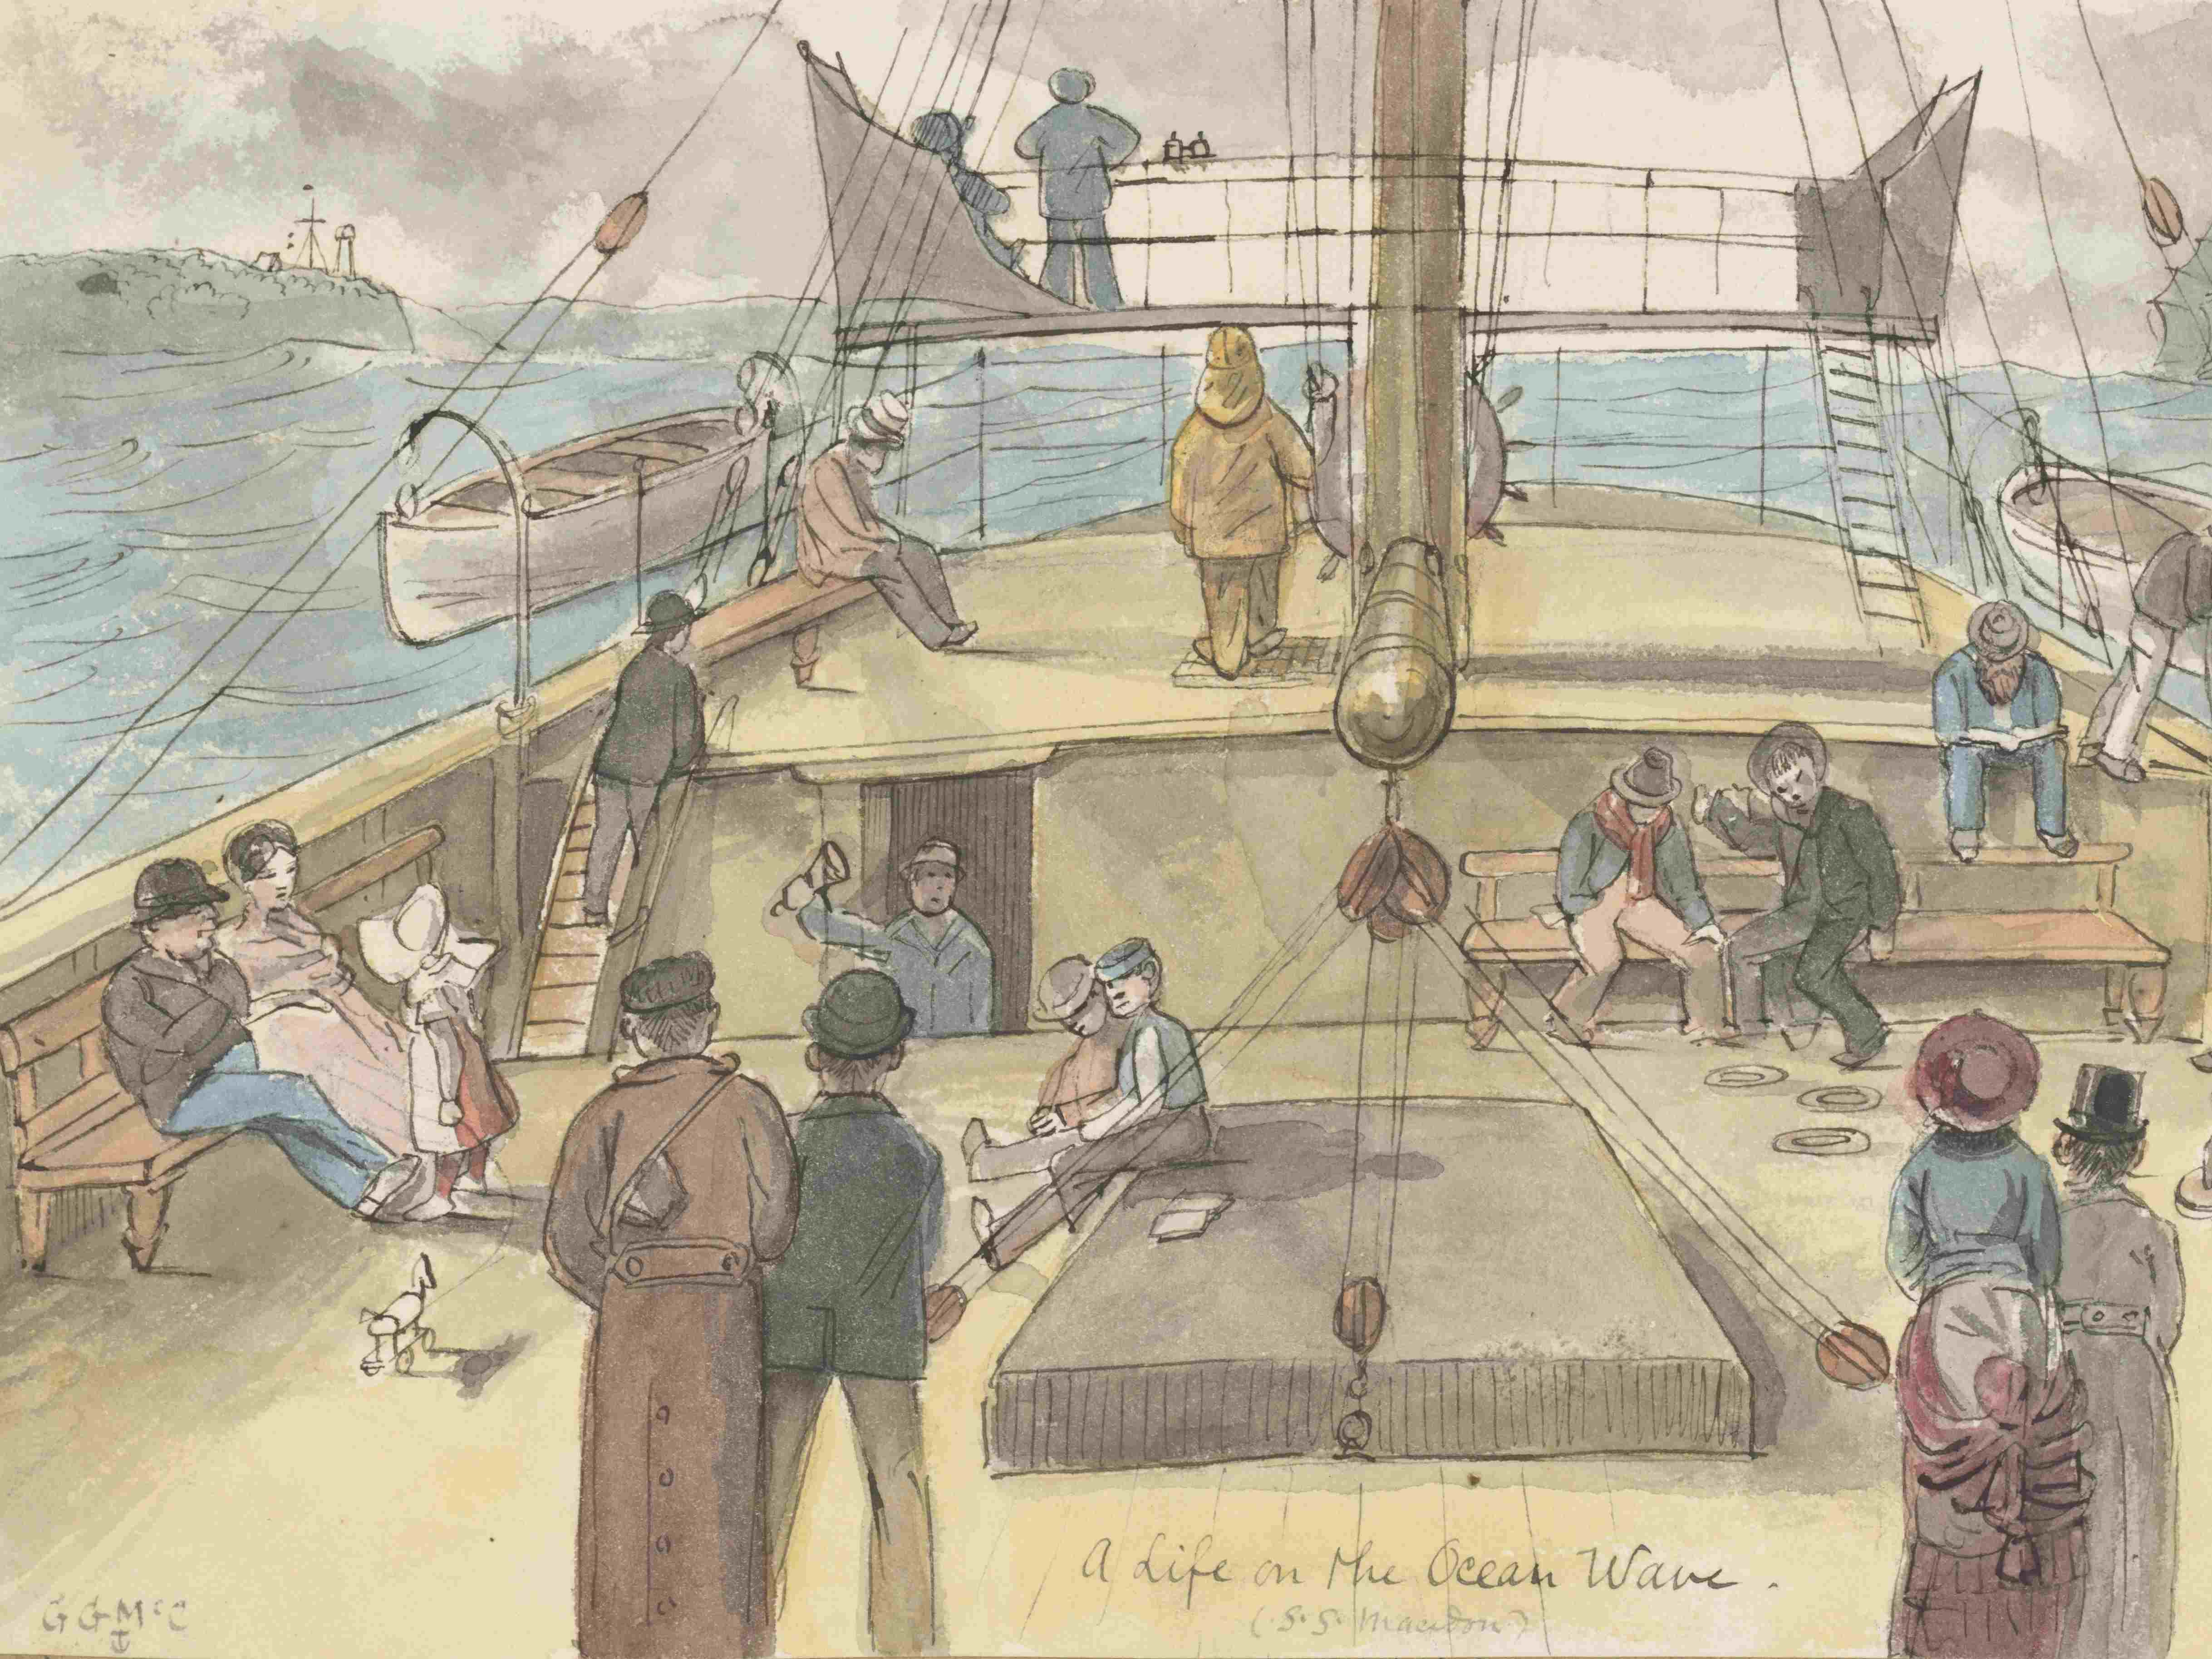 A Life on the Ocean Wave.
(S.S. Macedon)
GGMcC